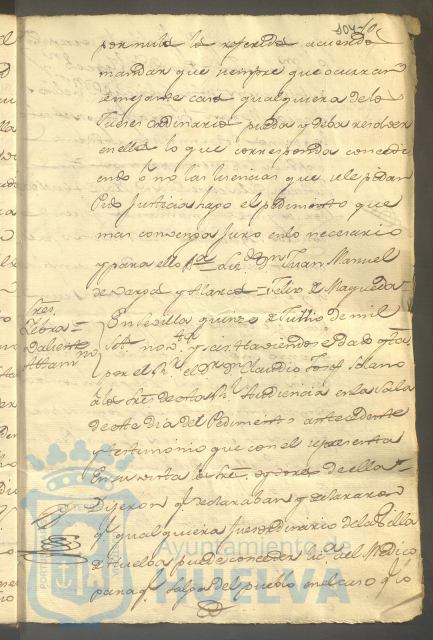 permita la referida acuerde
mandar que siempre que ocurran
semejante caso qualquiera de los
Jueses ordinarios pueda y deba resolver
en ellos lo que corresponda concedi
endo ô no las licencias que se le pidan
Pido Justicia hago el pedimento que
mas convenga Juro en lo necesario
y para ello &a Lic.do Dn Juan Manuel
de Vargas y Alarcon = Felix de Maqueda =
Sres
Lebra =
Valiente
En Sevilla quinze de Julio de mil
Set.s nov.ta y seis haviendose dado q.ta
por el Sr. el Dr. Dn Claudio Josef Solano
â los Sres de esta Rl Audiencia en la Sala
de este dia del Pedimento antecedente
y testimonio que con el representa
En su vista los Sres oydores de ella
Dijeron q.e declaraban y declararon
q.e qualquiera Jues ordinario de la Villa
de Huelba puede conceder lic.a al Medico
para q.e salga del pueblo en el caso q.e lo
Ayuntamiento de
HUELVA